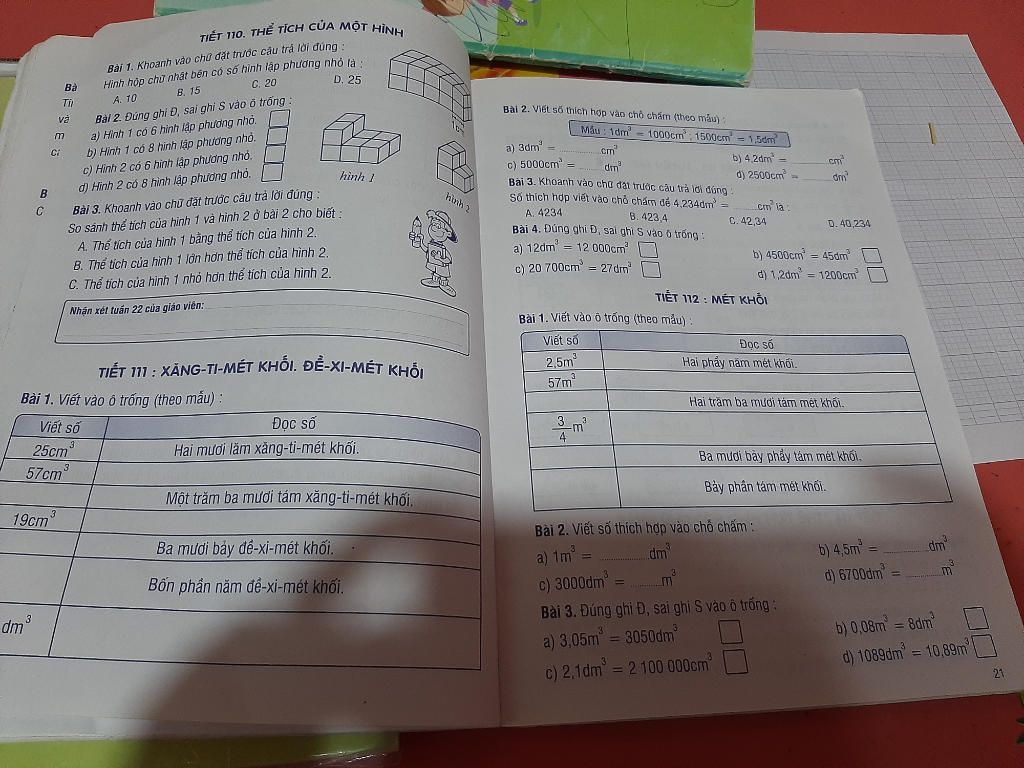 TIẾT 110. THỂ TÍCH CỦA MỘT HÌNH
Bài 1. Khoanh vào chữ đặt trước câu trả lời đúng :
Hình hộp chữ nhật bên có số hình lập phương nhỏ là :
A. 10 B. 15 C. 20 D. 25
Bài 2. Đúng ghi Đ, sai ghi S vào ô trống :
a) Hình 1 có 6 hình lập phương nhỏ.
b) Hình 1 có 8 hình lập phương nhỏ.
c) Hình 2 có 6 hình lập phương nhỏ.
d) Hình 2 có 8 hình lập phương nhỏ.
hình 1
hình 2
Bài 3. Khoanh vào chữ đặt trước câu trả lời đúng :
So sánh thể tích của hình 1 và hình 2 ở bài 2 cho biết :
A. Thể tích của hình 1 bằng thể tích của hình 2.
B. Thể tích của hình 1 lớn hơn thể tích của hình 2.
C. Thể tích của hình 1 nhỏ hơn thể tích của hình 2.
Nhận xét tuần 22 của giáo viên:
TIẾT 111 : XĂNG-TI-MÉT KHỐI. ĐỀ-XI-MÉT KHỐI
Bài 1. Viết vào ô trống (theo mẫu) :
Viết số Đọc số
25cm³ Hai mươi lăm xăng-ti-mét khối.
57cm³
Một trăm ba mươi tám xăng-ti-mét khối.
19cm³
Ba mươi bảy đề-xi-mét khối.
Bốn phần năm đề-xi-mét khối.
dm³
Bài 2. Viết số thích hợp vào chỗ chấm (theo mẫu) :
Mẫu : 1dm³ = 1000cm³ ; 1500cm³ = 1,5dm³
a) 3dm³ = ..........cm³ b) 4,2dm³ = ..........cm³
c) 5000cm³ = ........dm³ d) 2500cm³ = ........dm³
Bài 3. Khoanh vào chữ đặt trước câu trả lời đúng :
Số thích hợp viết vào chỗ chấm để 4,234dm³ = ........cm³ là :
A. 4234 B. 423,4 C. 42,34 D. 40,234
Bài 4. Đúng ghi Đ, sai ghi S vào ô trống :
a) 12dm³ = 12 000cm³ b) 4500cm³ = 45dm³
c) 20 700cm³ = 27dm³ d) 1,2dm³ = 1200cm³
TIẾT 112 : MÉT KHỐI
Bài 1. Viết vào ô trống (theo mẫu) :
Viết số Đọc số
2,5m³ Hai phẩy năm mét khối.
57m³
Hai trăm ba mươi tám mét khối.
3/4 m³
Ba mươi bảy phẩy tám mét khối.
Bảy phần tám mét khối.
Bài 2. Viết số thích hợp vào chỗ chấm :
a) 1m³ = ..........dm³ b) 4,5m³ = ..........dm³
c) 3000dm³ = ........m³ d) 6700dm³ = ..........m³
Bài 3. Đúng ghi Đ, sai ghi S vào ô trống :
a) 3,05m³ = 3050dm³ b) 0,08m³ = 8dm³
c) 2,1dm³ = 2 100 000cm³ d) 1089dm³ = 10,89m³
21